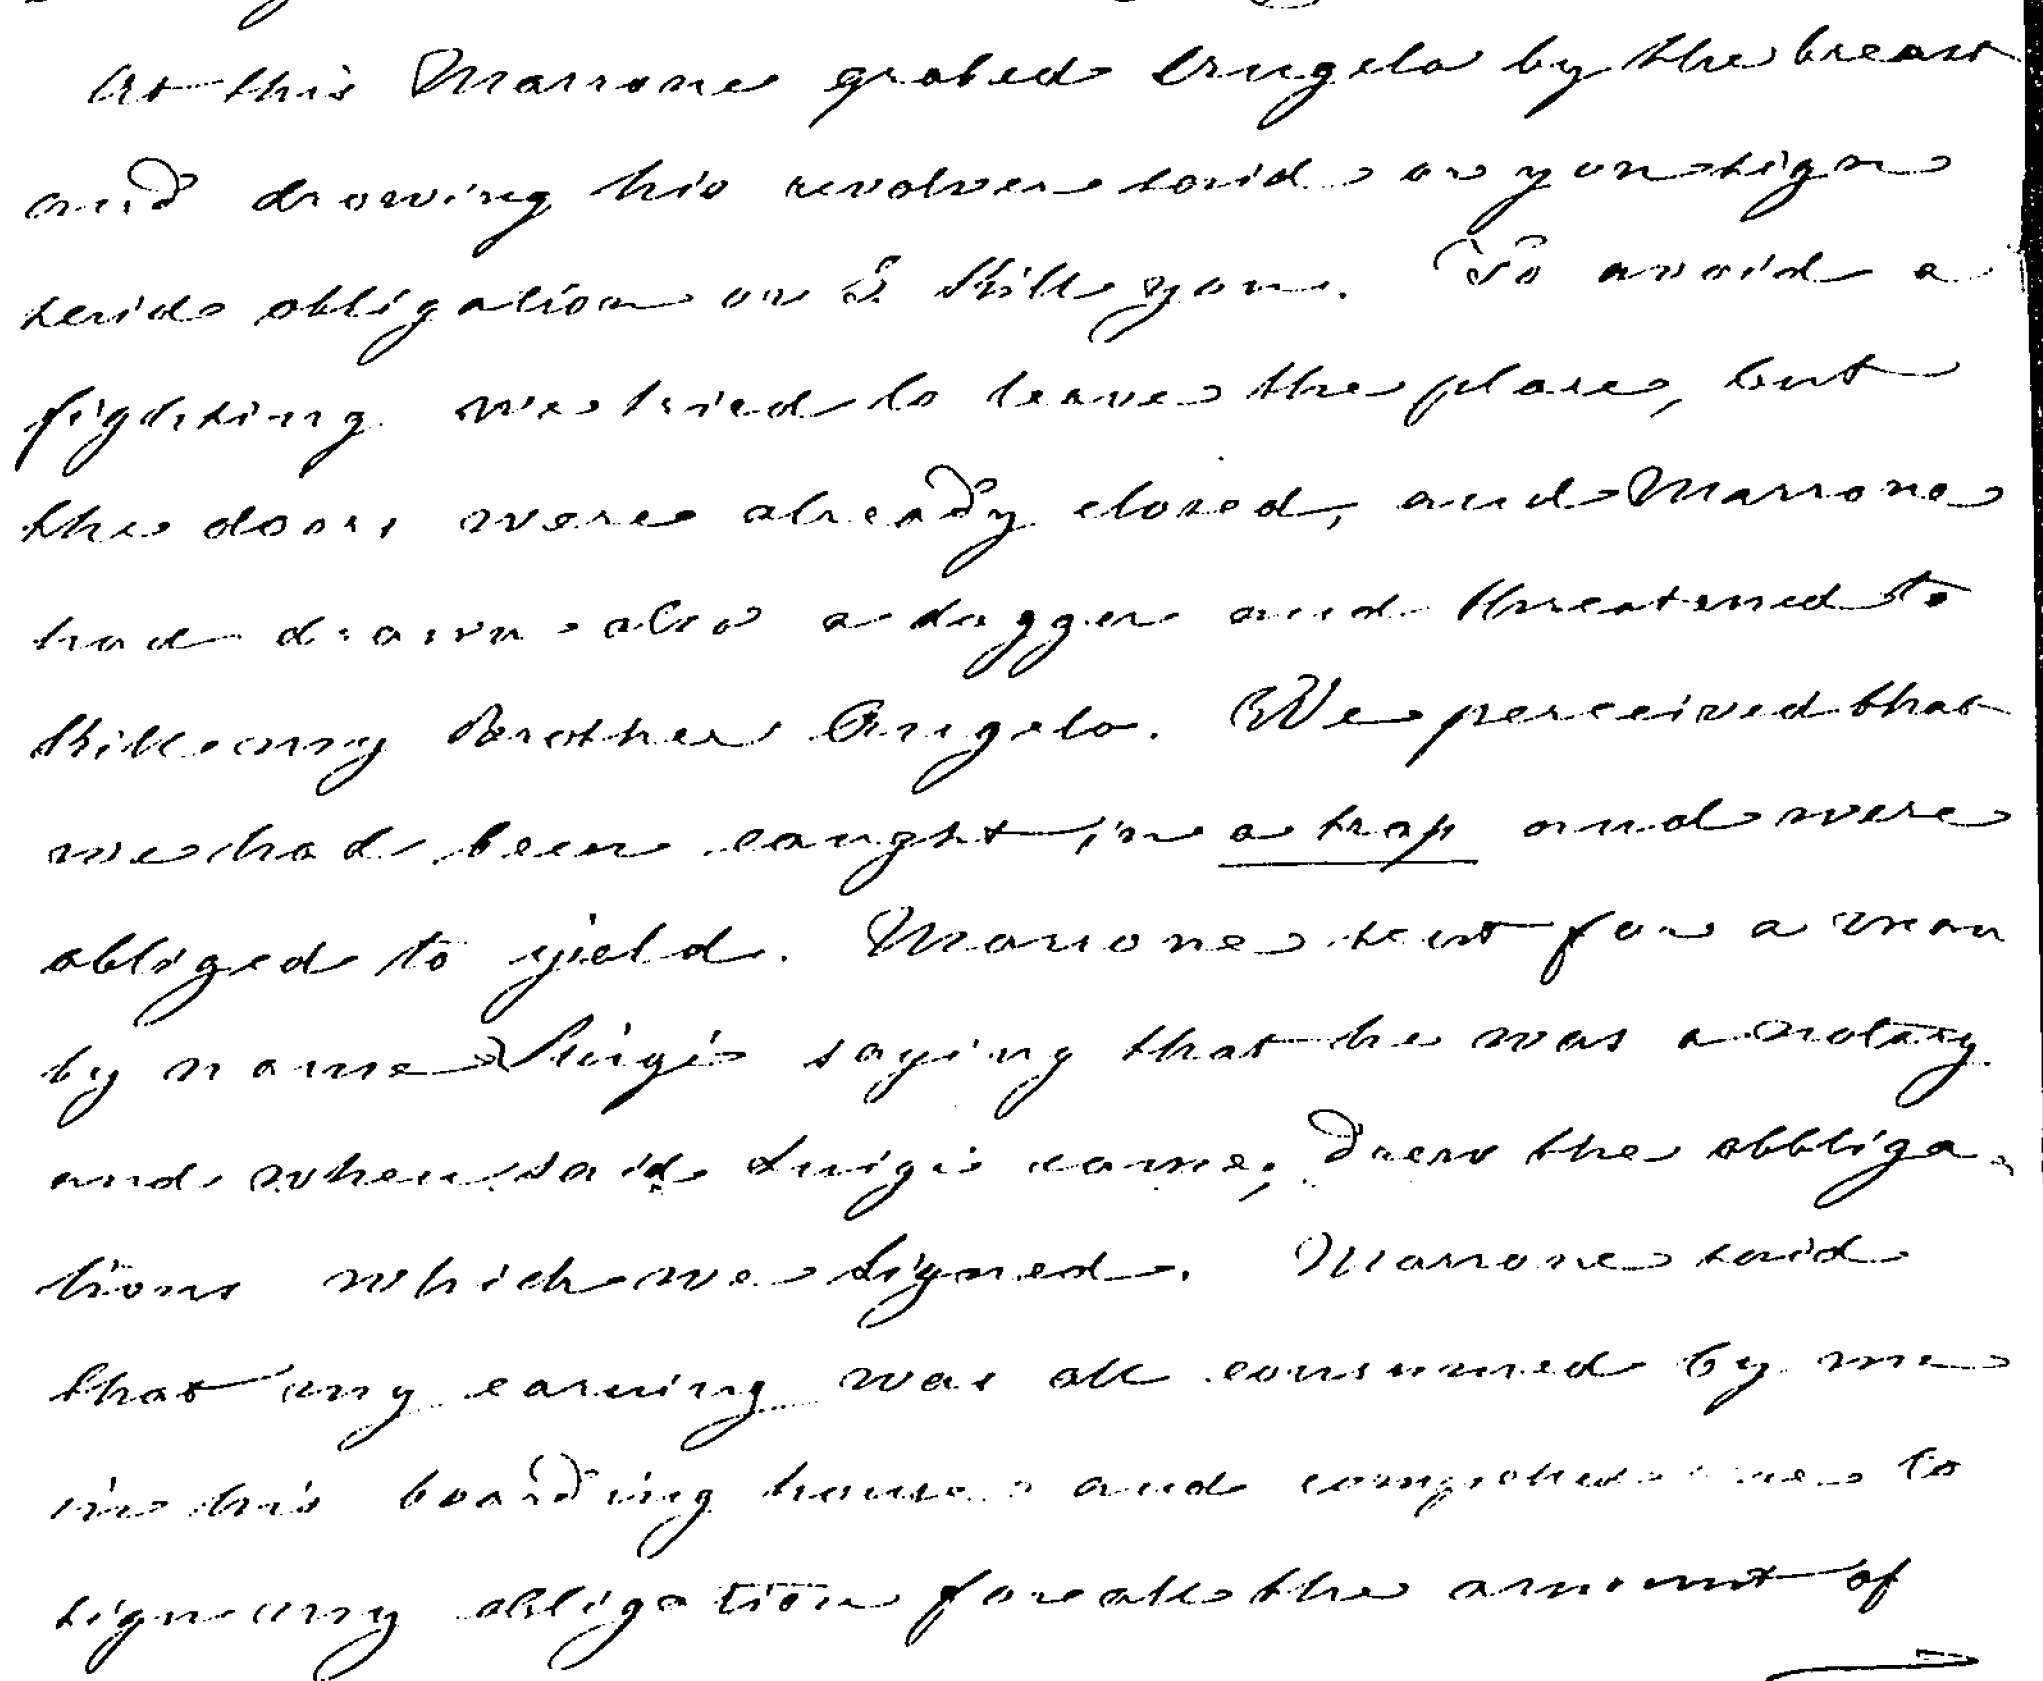 At this Marrone grabed Angelo by the breast
and drowing his revolver said or you sign
seid obligation or I kill you. To avoid a
fighting we tried to leave the place, but
the doors were already closed, and Marrone
had drawn also a dagger and threatened to
kill my Brother Angelo. We perceived that
we had been caught in a trap and were
obliged to yield. Marrone sent for a man
by name Luigi saying that he was a notary
and when said Luigi came, drew the obbliga-
tions which we signed. Marrone said
that my earning was all consumed by me
in his boarding house and compelled me to
sign my obligation for all the amount of